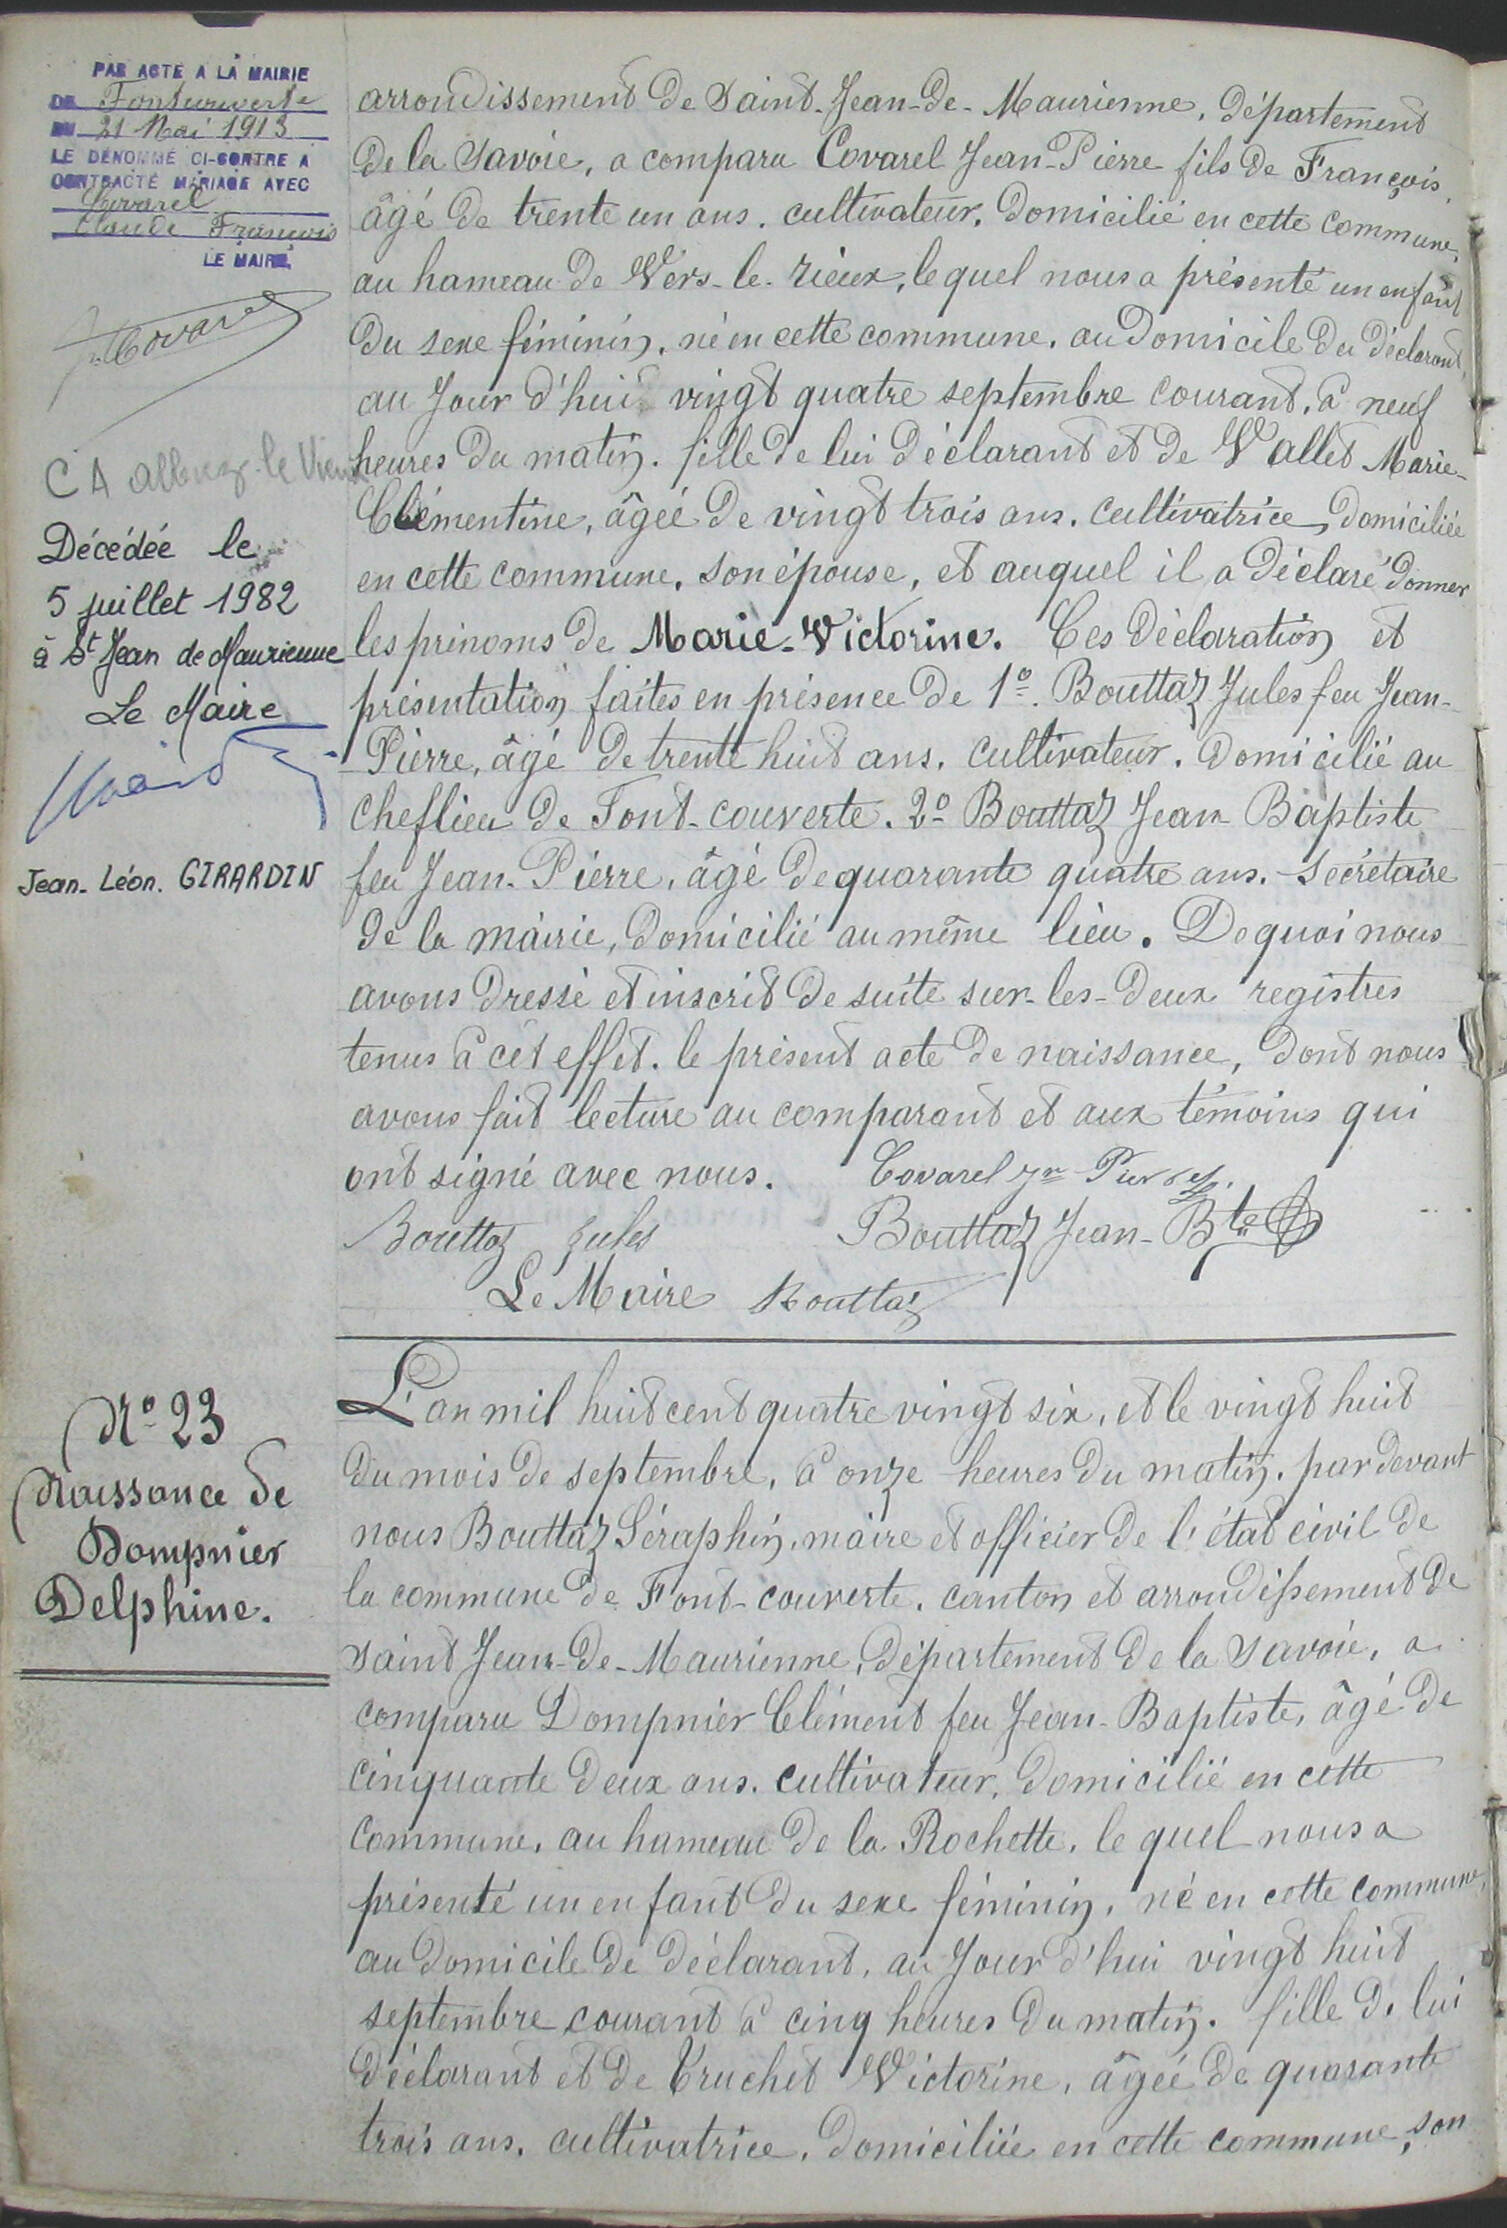 PAR ACTE A LA MAIRIE
DE Fontcouverte
DU 21 Mai 1913
LE DÉNOMMÉ CI-CONTRE A
CONTRACTÉ MARIAGE AVEC
Covarel
Claude François
LE MAIRE,
Covarel
CA albiez-le Vieux
Décédée le
5 juillet 1982
à St Jean de Maurienne
Le Maire
Jean-Léon GIRARDIN
arrondissement de Saint-Jean-de-Maurienne, département
de la Savoie, a comparu Covarel Jean-Pierre fils de François,
âgé de trente un ans, cultivateur, domicilié en cette commune,
au hameau de Vers-le-rieux, lequel nous a présenté un enfant
du sexe féminin, né en cette commune, au domicile du déclarant,
au Jour d'hui vingt quatre septembre courant, à neuf
heures du matin, fille de lui déclarant et de Vallet Marie-
Clémentine, âgée de vingt trois ans, cultivatrice, domiciliée
en cette commune, son épouse, et auquel il a déclaré donner
les prénoms de Marie-Victorine. Ces déclaration et
présentation faites en présence de 1º. Bouttaz Jules feu Jean-
Pierre, âgé de trente huit ans, cultivateur, domicilié au
cheflieu de Font-couverte. 2º Bouttaz Jean Baptiste
feu Jean-Pierre, âgé de quarante quatre ans, secrétaire
de la mairie, domicilié au même lieu. De quoi nous
avons dressé et inscrit de suite sur-les-deux registres
tenus à cet effet, le présent acte de naissance, dont nous
avons fait lecture au comparant et aux témoins qui
ont signé avec nous. Covarel Jn Pierre
Bouttaz Jules Bouttaz Jean-Bte
Le Maire Bouttaz
Nº 23
Naissance de
Dompnier
Delphine.
L'an mil huit cent quatre vingt six, et le vingt huit
du mois de septembre, à onze heures du matin, par devant
nous Bouttaz Séraphin, maire et officier de l'état civil de
la commune de Font-couverte, canton et arrondissement de
Saint Jean-de-Maurienne, département de la Savoie, a
comparu Dompnier Clément feu Jean-Baptiste, âgé de
cinquante deux ans, cultivateur, domicilié en cette
commune, au hameau de la Rochette, le quel nous a
présenté un enfant du sexe féminin, né en cette commune,
au domicile de déclarant, au Jour d'hui vingt huit
septembre courant à cinq heures du matin, fille de lui
déclarant et de Truchet Victorine, âgée de quarante
trois ans, cultivatrice, domiciliée en cette commune, son